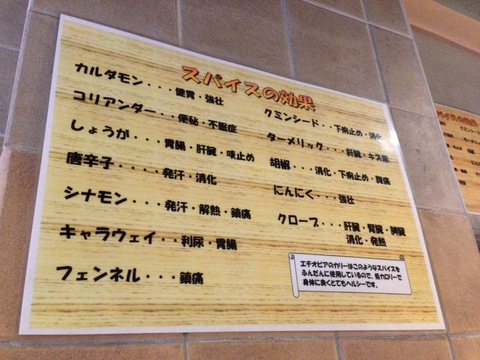 スパイスの効果
カルダモン・・・健胃・強壮
コリアンダー・・・便秘・不眠症
しょうが・・・胃腸・肝臓・咳止め
唐辛子・・・発汗・消化
シナモン・・・発汗・解熱・鎮痛
キャラウェイ・・利尿・胃腸
フェンネル・・・鎮痛
クミンシード・・・下痢止め・消化
ターメリック・・・肝臓・キズ薬
胡椒・・・消化・下痢止め・腹痛
にんにく・・・強壮
クローブ・・・肝臓・腎臓・脾臓
消化・発熱
エチオピアのカリーはこのようなスパイスを
ふんだんに使用しているので、低カロリーで
身体に良くとてもヘルシーです。